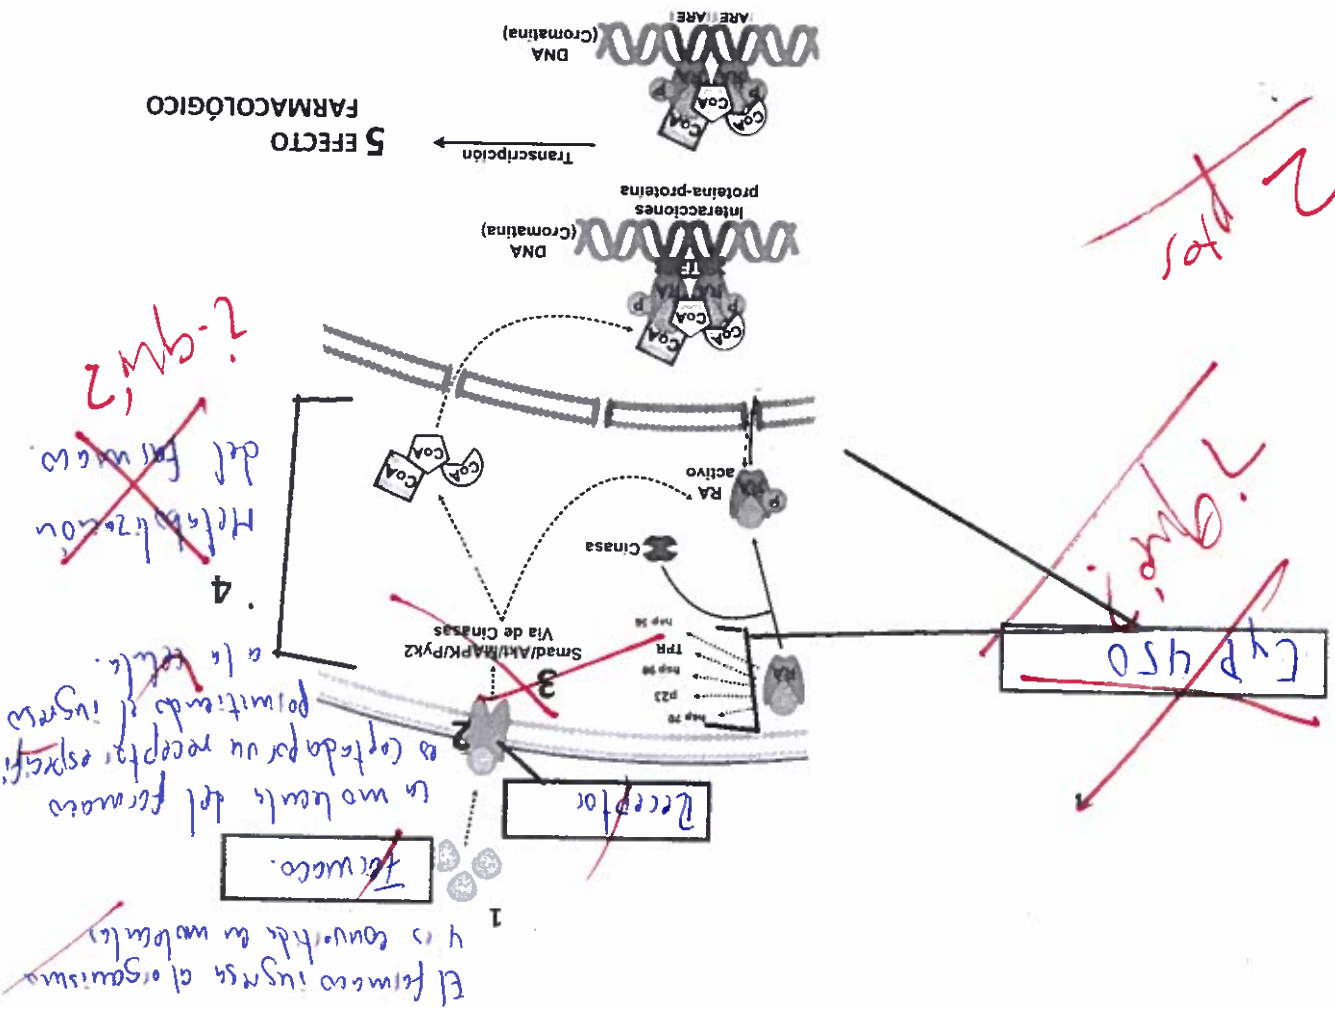 El farmaco ingresa al organismo
y es convertido en moleculas
1
Farmaco.
Receptor
La molecula del farmaco
es captada por su receptor especifi
permitiendo el ingreso
a la celula.
2
3
Smad/Akt/MAPK/Pyk2
Vía de Cinasas
hsp 70
p23
hsp 90
TPR
hsp 56
RA
CYP 450
¿Qué?
4
Metabolización
del farmaco
¿-qué?
Cinasa
RA
activo
RA
P
CoA
CoA
CoA
CoA
CoA
CoA
P
P
RA
TF
DNA
(Cromatina)
Interacciones
proteína-proteína
Transcripción
5 EFECTO
FARMACOLÓGICO
CoA
CoA
CoA
P
P
DNA
(Cromatina)
ARE
ARE
2 ptos